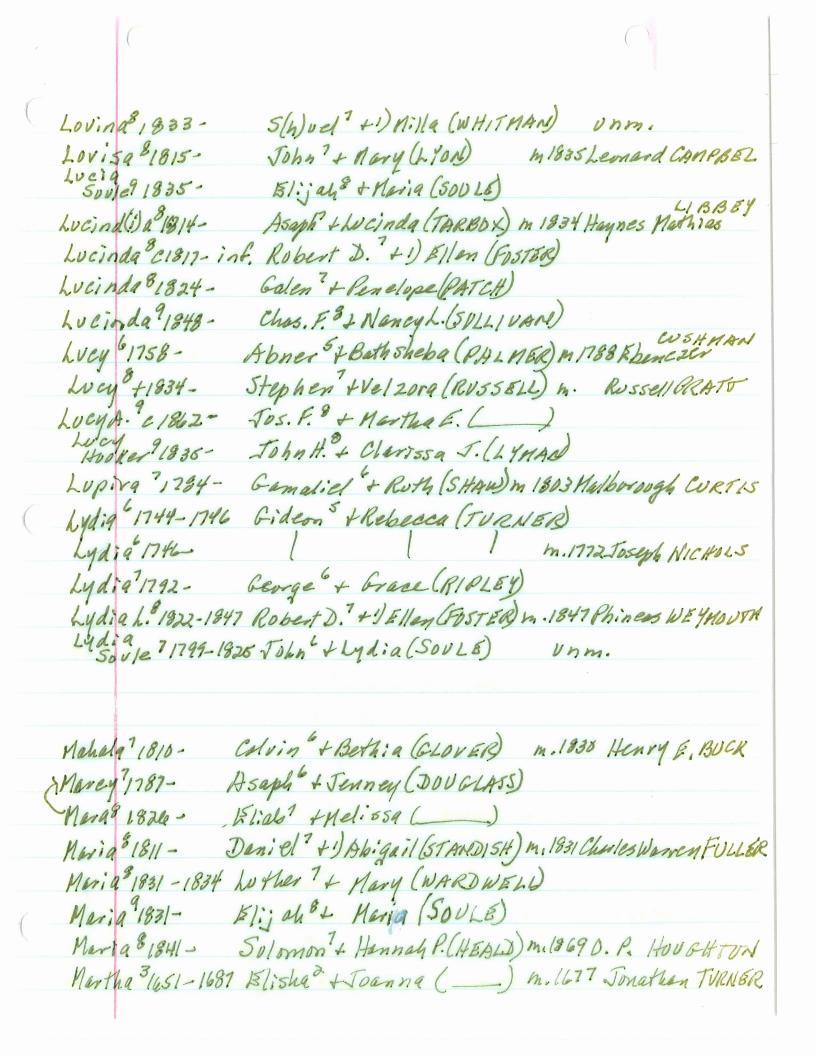 Lovina⁸ 1833- S(h)uel⁷ +1) Milla (WHITMAN) unm.
Lovisa⁸ 1815- John⁷ + Mary (LYON) m 1835 Leonard CAMPBEL
Lucia
Soule⁹ 1835- Elijah⁸ + Maria (SOULE)
LIBBEY
Lucind(i)a⁸ 1814- Asaph⁷ + Lucinda (TARBOX) m 1834 Haynes Mathias
Lucinda⁸ c1817- inf. Robert D.⁷ +1) Ellen (FOSTER)
Lucinda⁸ 1824- Galen⁷ + Penelope (PATCH)
Lucinda⁹ 1848- Chas. F.⁸ + Nancy L. (SULLIVAN)
CUSHMAN
Lucy⁶ 1758- Abner⁵ + Bathsheba (PALMER) m 1788 Ebenezer
Lucy⁸ +1834- Stephen⁷ + Velzora (RUSSELL) m. Russell PRATT
Lucy A.⁹ c1862- Jos. F.⁸ + Martha E. (______)
Lucy
Hooker⁹ 1835- John H.⁸ + Clarissa J. (LYMAN)
Lupira⁷ 1784- Gamaliel⁶ + Ruth (SHAW) m 1803 Malborough CURTIS
Lydia⁶ 1744-1746 Gideon⁵ + Rebecca (TURNER)
Lydia⁶ 1746- | | | m.1772 Joseph NICHOLS
Lydia⁷ 1792- George⁶ + Grace (RIPLEY)
Lydia L.⁸ 1822-1847 Robert D.⁷ +1) Ellen (FOSTER) m.1847 Phineas WEYMOUTH
Lydia
Soule⁷ 1799-1825 John⁶ + Lydia (SOULE) unm.
Mahala⁷ 1810- Calvin⁶ + Bethia (GLOVER) m.1830 Henry E. BUCK
Marcy⁷ 1787- Asaph⁶ + Jenney (DOUGLASS)
Mara⁸ 1826- Eliab⁷ + Melissa (______)
Maria⁸ 1811- Daniel⁷ +1) Abigail (STANDISH) m.1831 Charles Warren FULLER
Maria⁸ 1831-1834 Luther⁷ + Mary (WARDWELL)
Maria⁹ 1831- Elijah⁸ + Maria (SOULE)
Maria⁸ 1841- Solomon⁷ + Hannah P. (HEALD) m.1869 D. P. HOUGHTON
Martha³ 1651-1687 Elisha² + Joanna (____) m.1677 Jonathan TURNER